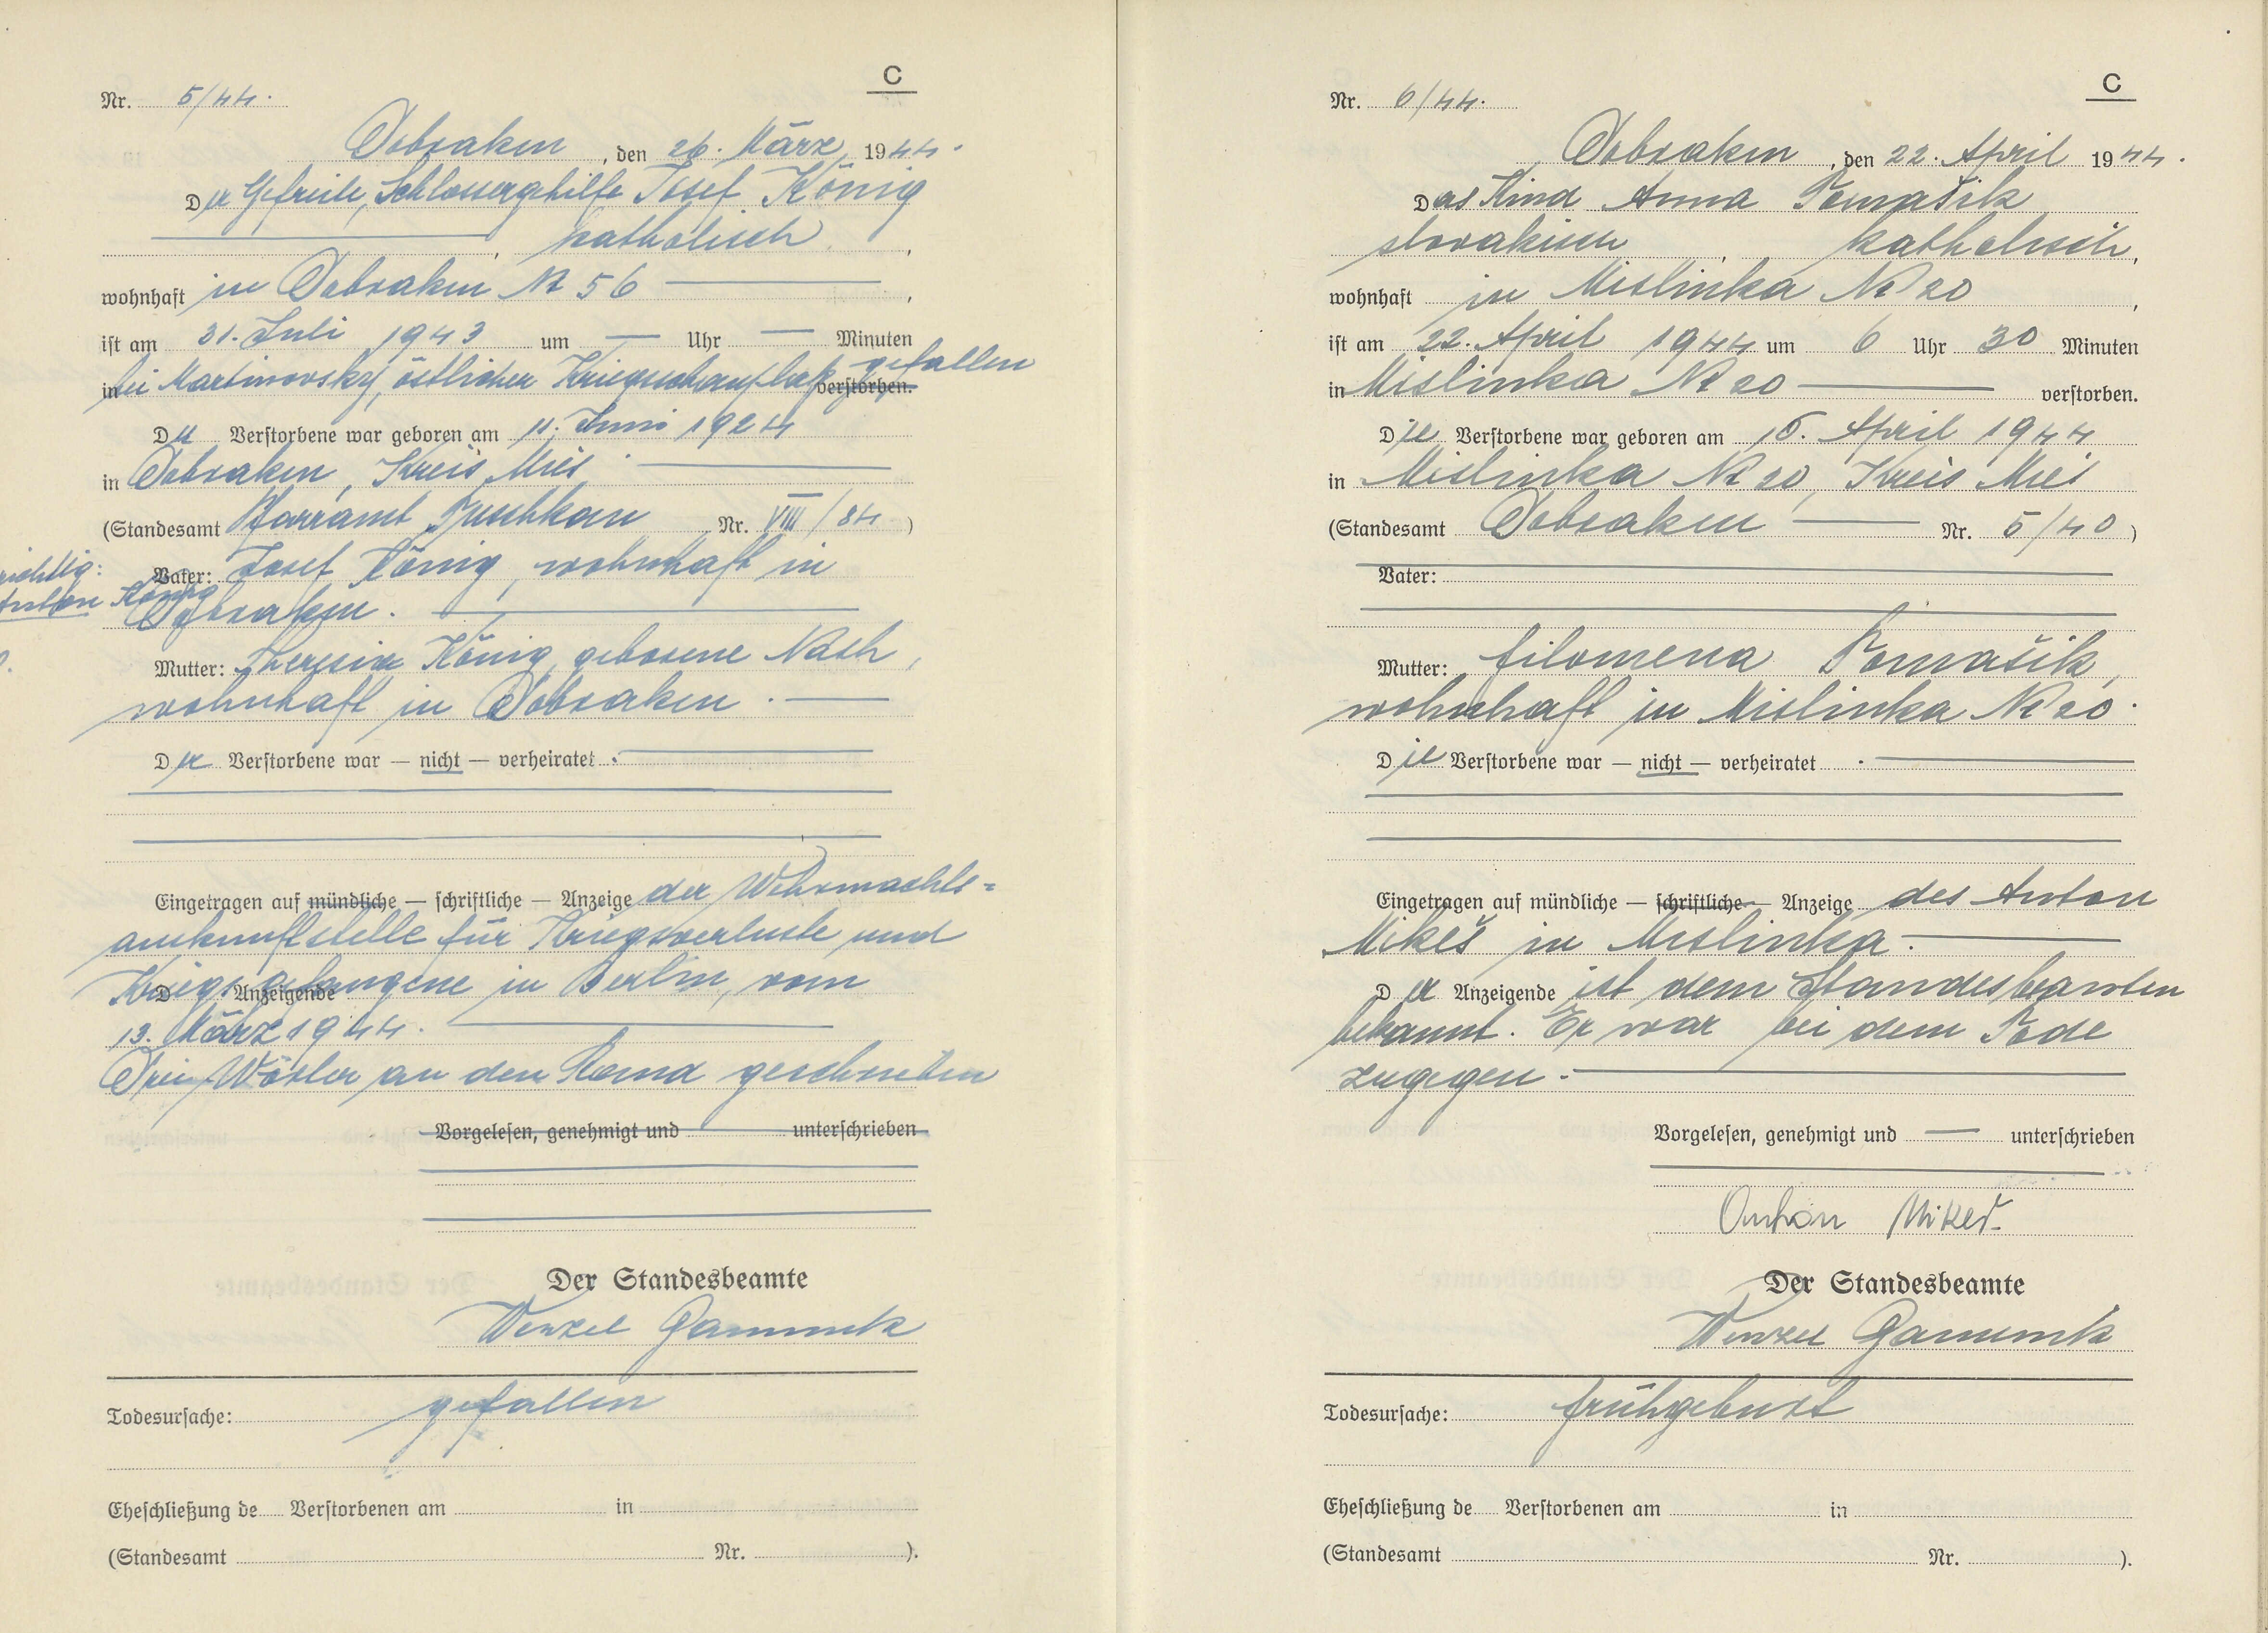 C
Nr. 5/44.
Dobraken, den 26. März 1944.
Der Gefreite, Schlossergehilfe Josef König
katholisch,
wohnhaft in Dobraken № 56,
ist am 31. Juli 1943 um — Uhr — Minuten
gefallen
in bei Martinovskij, östlicher Kriegsschauplatz verstorben.
Der Verstorbene war geboren am 11. Juni 1924
in Dobraken, Kreis Mies.
(Standesamt Pfarramt Tuschkau Nr. VIII/84)
richtig:
Vater: Josef König, wohnhaft in
Anton König
Dobraken.
Mutter: Theresia König geborene Nash,
wohnhaft in Dobraken.
Der Verstorbene war — nicht — verheiratet.
Eingetragen auf mündliche — schriftliche — Anzeige der Wehrmachts=
auskunftstelle für Kriegsverluste und
Kriegsgefangene in Berlin, vom
D Anzeigende
13. März 1944.
Drei Wörter an den Rand geschrieben
Vorgelesen, genehmigt und unterschrieben
Der Standesbeamte
Wenzel
Todesursache: gefallen
Eheschließung de Verstorbenen am in
(Standesamt Nr. ).
C
Nr. 6/44.
Dobraken, den 22. April 1944.
Das Kind Anna Tomašik
slovakisch, katholisch,
wohnhaft in Mislinka № 20,
ist am 22. April 1944 um 6 Uhr 30 Minuten
in Mislinka № 20 verstorben.
Die Verstorbene war geboren am 15. April 1944
in Mislinka № 20, Kreis Mies
(Standesamt Dobraken Nr. 5/40)
Vater:
Mutter: Filomena Tomašik,
wohnhaft in Mislinka № 20.
Die Verstorbene war — nicht — verheiratet.
Eingetragen auf mündliche — schriftliche — Anzeige des Anton
Mikeš in Mislinka.
Der Anzeigende ist dem Standesbeamten
bekannt. Er war bei dem Tode
zugegen.
Vorgelesen, genehmigt und — unterschrieben
Anton Mikeš
Der Standesbeamte
Wenzel
Todesursache: Frühgeburt
Eheschließung de Verstorbenen am in
(Standesamt Nr. ).